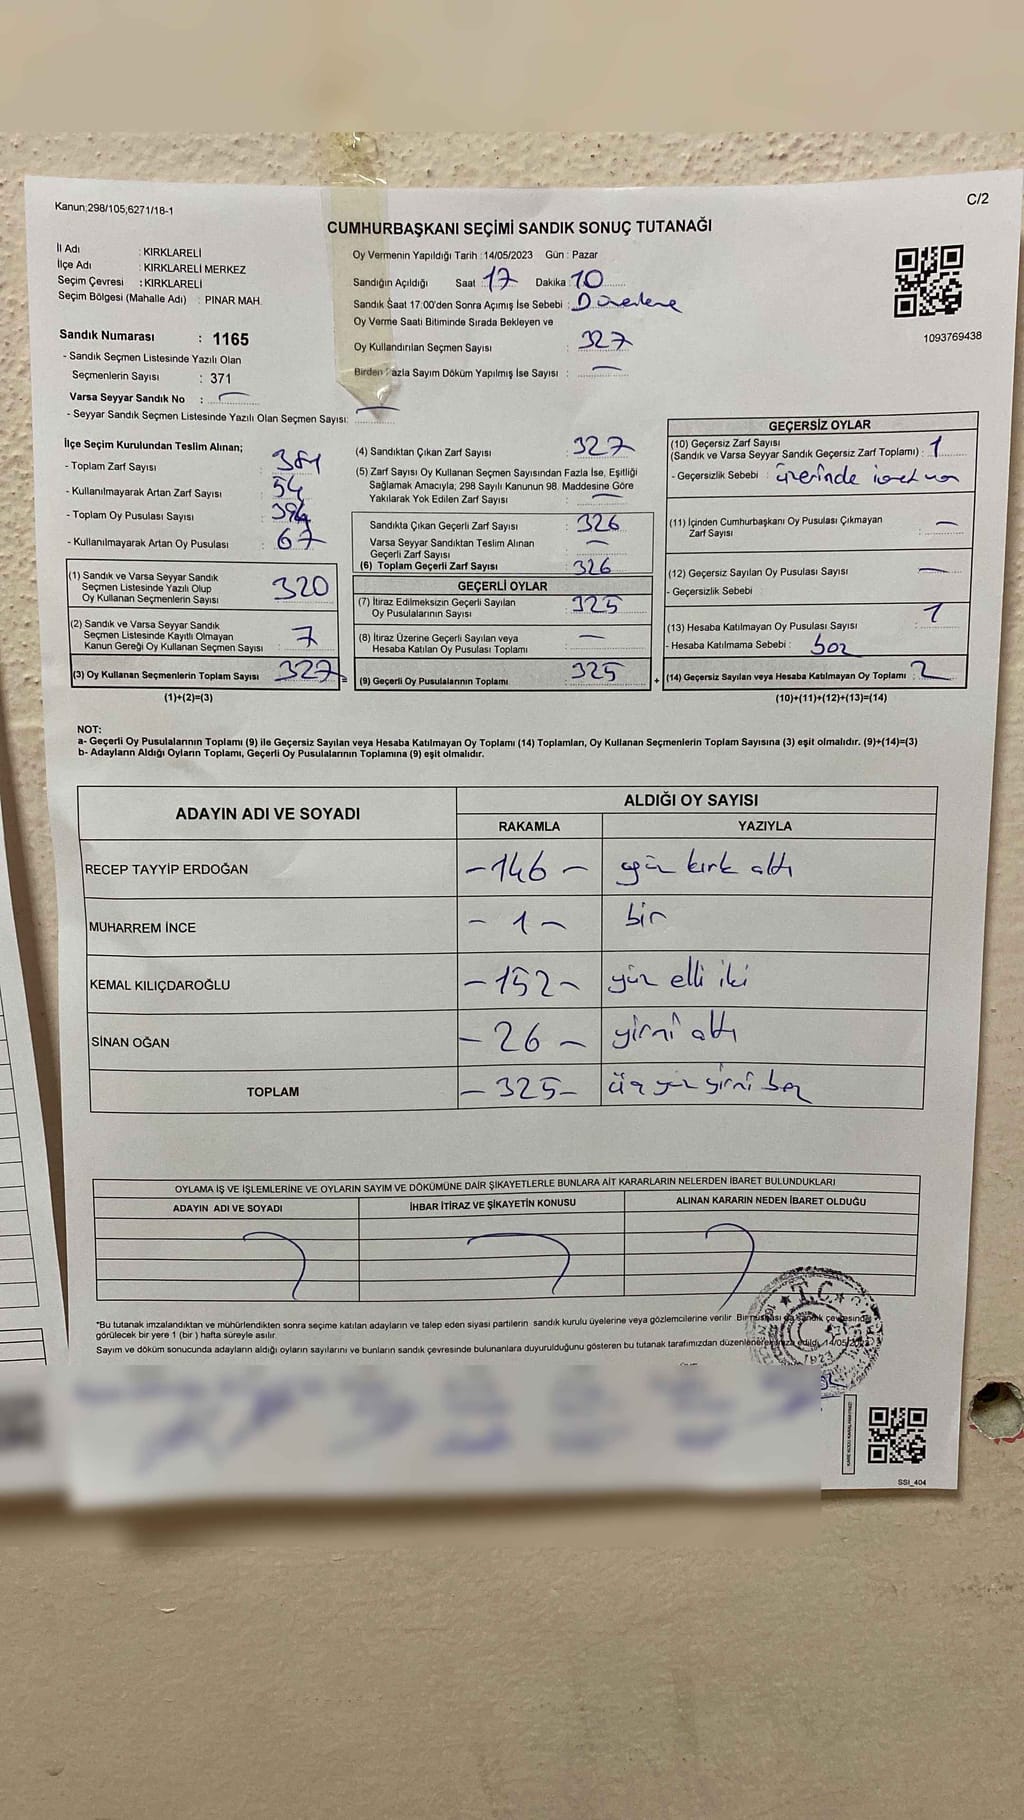 Kanun;298/105;6271/18-1
C/2
CUMHURBAŞKANI SEÇİMİ SANDIK SONUÇ TUTANAĞI
İl Adı : KIRKLARELİ
İlçe Adı : KIRKLARELİ MERKEZ
Seçim Çevresi : KIRKLARELİ
Seçim Bölgesi (Mahalle Adı) : PINAR MAH.
Sandık Numarası : 1165
- Sandık Seçmen Listesinde Yazılı Olan
Seçmenlerin Sayısı : 371
Varsa Seyyar Sandık No : —
- Seyyar Sandık Seçmen Listesinde Yazılı Olan Seçmen Sayısı: —
Oy Vermenin Yapıldığı Tarih : 14/05/2023 Gün : Pazar
Sandığın Açıldığı Saat : 17 Dakika : 10
Sandık Saat 17:00'den Sonra Açımış İse Sebebi : Düzenleme
Oy Verme Saati Bitiminde Sırada Bekleyen ve
Oy Kullandırılan Seçmen Sayısı : 327
Birden Fazla Sayım Döküm Yapılmış İse Sayısı : —
1093769438
İlçe Seçim Kurulundan Teslim Alınan;
- Toplam Zarf Sayısı : 381
- Kullanılmayarak Artan Zarf Sayısı : 54
- Toplam Oy Pusulası Sayısı : 394
- Kullanılmayarak Artan Oy Pusulası : 67
(1) Sandık ve Varsa Seyyar Sandık
Seçmen Listesinde Yazılı Olup
Oy Kullanan Seçmenlerin Sayısı : 320
(2) Sandık ve Varsa Seyyar Sandık
Seçmen Listesinde Kayıtlı Olmayan
Kanun Gereği Oy Kullanan Seçmen Sayısı : 7
(3) Oy Kullanan Seçmenlerin Toplam Sayısı : 327
(1)+(2)=(3)
(4) Sandıktan Çıkan Zarf Sayısı : 327
(5) Zarf Sayısı Oy Kullanan Seçmen Sayısından Fazla İse, Eşitliği
Sağlamak Amacıyla; 298 Sayılı Kanunun 98. Maddesine Göre
Yakılarak Yok Edilen Zarf Sayısı : —
Sandıkta Çıkan Geçerli Zarf Sayısı : 326
Varsa Seyyar Sandıktan Teslim Alınan
Geçerli Zarf Sayısı : —
(6) Toplam Geçerli Zarf Sayısı : 326
GEÇERLİ OYLAR
(7) İtiraz Edilmeksizin Geçerli Sayılan
Oy Pusulalarının Sayısı : 325
(8) İtiraz Üzerine Geçerli Sayılan veya
Hesaba Katılan Oy Pusulası Toplamı : —
(9) Geçerli Oy Pusulalarının Toplamı : 325
GEÇERSİZ OYLAR
(10) Geçersiz Zarf Sayısı
(Sandık ve Varsa Seyyar Sandık Geçersiz Zarf Toplamı) : 1
- Geçersizlik Sebebi : üzerinde işaret var
(11) İçinden Cumhurbaşkanı Oy Pusulası Çıkmayan
Zarf Sayısı : —
(12) Geçersiz Sayılan Oy Pusulası Sayısı : —
- Geçersizlik Sebebi
(13) Hesaba Katılmayan Oy Pusulası Sayısı : 1
- Hesaba Katılmama Sebebi : boş
(14) Geçersiz Sayılan veya Hesaba Katılmayan Oy Toplamı : 2
(10)+(11)+(12)+(13)=(14)
NOT:
a- Geçerli Oy Pusulalarının Toplamı (9) ile Geçersiz Sayılan veya Hesaba Katılmayan Oy Toplamı (14) Toplamları, Oy Kullanan Seçmenlerin Toplam Sayısına (3) eşit olmalıdır. (9)+(14)=(3)
b- Adayların Aldığı Oyların Toplamı, Geçerli Oy Pusulalarının Toplamına (9) eşit olmalıdır.
ADAYIN ADI VE SOYADI
ALDIĞI OY SAYISI
RAKAMLA YAZIYLA
RECEP TAYYİP ERDOĞAN -146- yüz kırk altı
MUHARREM İNCE -1- bir
KEMAL KILIÇDAROĞLU -152- yüz elli iki
SİNAN OĞAN -26- yirmi altı
TOPLAM -325- üç yüz yirmi beş
OYLAMA İŞ VE İŞLEMLERİNE VE OYLARIN SAYIM VE DÖKÜMÜNE DAİR ŞİKAYETLERLE BUNLARA AİT KARARLARIN NELERDEN İBARET BULUNDUKLARI
ADAYIN ADI VE SOYADI İHBAR İTİRAZ VE ŞİKAYETİN KONUSU ALINAN KARARIN NEDEN İBARET OLDUĞU
*Bu tutanak imzalandıktan ve mühürlendikten sonra seçime katılan adayların ve talep eden siyasi partilerin sandık kurulu üyelerine veya gözlemcilerine verilir. Bir nüshası da sandık çevresinde
görülecek bir yere 1 (bir) hafta süreyle asılır.
Sayım ve döküm sonucunda adayların aldığı oyların sayılarını ve bunların sandık çevresinde bulunanlara duyurulduğunu gösteren bu tutanak tarafımızdan düzenlenerek imza edildi. 14/05/2023
T.C.
1923
SSI_404